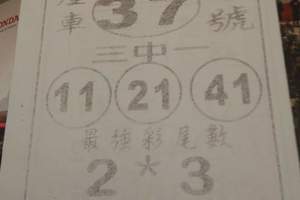 車 37 號
三中一
11 21 41
最強彩尾數
2 * 3